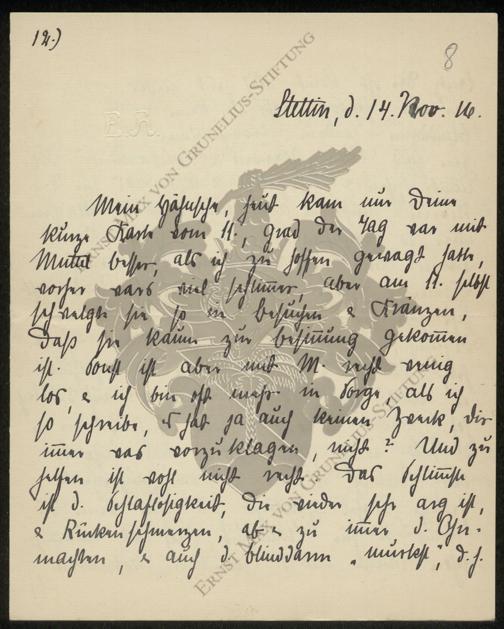 12.)
8
E.R.
Stettin, d. 14. Nov. 16.
Mein Hähnche, heut kam nur Deine
kurze Karte vom 11., grad der Tag war mit
Muttel besser, als ich zu hoffen gewagt hatte,
vorher wars viel schlimmer, aber am 11. selbst
schwelgte sie so in Besuchen & Kränzen,
daß sie kaum zur Besinnung gekommen
ist. Sonst ist aber mit M. recht wenig
los, & ich bin oft mehr in Sorge, als ich
so schreibe, 's hat ja auch keinen Zweck, Dir
immer was vorzuklagen, nicht? Und zu
helfen ist wohl nicht recht. Das Schlimmste
ist d. Schlaflosigkeit, die wieder sehr arg ist,
& Rückenschmerzen, ab & zu immer d. Ohn-
machten, & auch d. Blinddarm „murkst“, d.h.
ERNST MAX VON GRUNELIUS-STIFTUNG
ERNST MAX VON GRUNELIUS-STIFTUNG